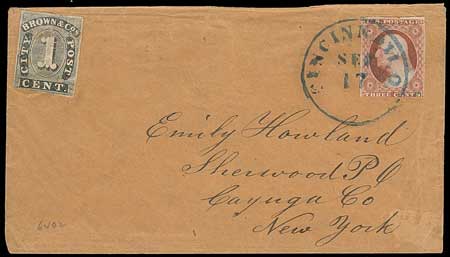 BROWN & CO'S
CITY POST
1
CENT.
CINCINNATI O.
SEP
17
U.S. POSTAGE
THREE CENTS
Emily Howland
Sherwood P O
Cayuga Co
New York
6402